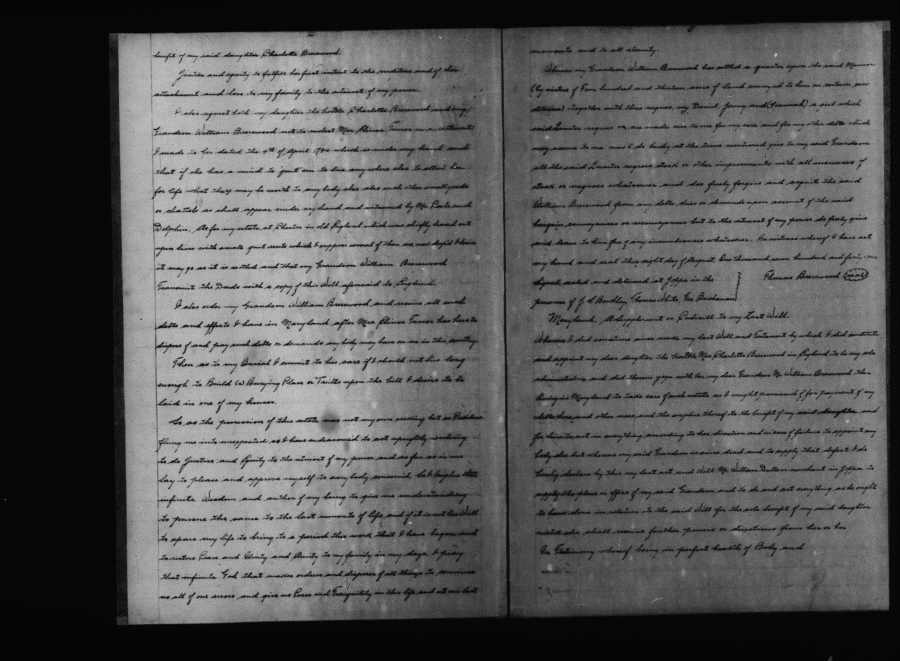 benefit of my said daughter Charlotte Brerewood.
Justice and equity to fulfill her first intent to the creditors and of his
attachment and love to my family to the interest of my power.
I also request both my daughter the Charlotte Brerewood and my
Grandson William Brerewood not to molest Mrs. Turner in a
I made to her dated the 4th of April which is under my hand and
that if she has a mind to quit or to live any where else to allow her
for life what they may be worth to any body else also such other small goods
or chattels as shall appear under my hand and witnessed by Mr. and
Dolphin. As for my estate at in old England which was chiefly leased out
upon lives with small quit rents which I suppose several of them are now I desire
it may go as it is settled and that my Grandson William Brerewood
Transmit the Deeds with a copy of this Will to England.
I also order my Grandson William Brerewood and receive all such
debts and effects I have in Maryland after Mrs. Turner has
dispose of and pay such debts or demands any body may have on me in this country.
Then as to my Burial I commit to his care if I should not live long
enough to Build a Burying Place or Tomb upon the hill I desire to be
laid in one of my
So as the possession of this estate was not my own seeking but as Providence
me into unexpected as I have endeavoured to act uprightly
to do Justice and Equity to the utmost of my power and as far as in me
lay to please and approve myself to everybody
infinite Wisdom and author of my being to give me understanding
to pursue the same to the last moments of life, and if it is not his Will
to spare my life to bring to a period this work that I have begun and
to restore Peace and Unity and Amity to my family in my days I pray
that infinite God that makes orders and disposes of all things to convince
us all of our errors, and give us Peace and Tranquility in this life and at our last
moments and to all eternity.
Whereas my Grandson William Brerewood has settled a upon the said
(by virtue of Four hundred and thirteen acres of land conveyed to him on certain con-
ditions) together with three negroes, my Daniel, Jenny and (Hannah) a girl which
said negroes are made over to me for my own and for my other debts which
may seem to me most I do hereby at the time mentioned give to my said Grandson
all the said negroes stock or other improvements with all increases of
stock or negroes whatsoever and do freely forgive and acquit the said
William Brerewood from any debts dues or demands upon account of the said
bargain conveyances or reconveyances but to the utmost of my power do freely give
and leave to him free of any incumbrances whatsoever. In witness whereof I have set
my hand and seal this eight day of August One thousand seven hundred and forty one
Signed, sealed and delivered at Joppa in the } Thomas Brerewood (seal)
presence of J. S. Bradley, Thomas White, Geo. Buchanan
Maryland. A Supplement or Codicill to my Last Will.
Whereas I did sometime since make my last Will and Testament by which I did constitute
and appoint my dear daughter the Mrs. Charlotte Brerewood in England to be my sole
and did therein joyn with her my dear Grandson Mr. William Brerewood then
living in Maryland to take care of such estate as I might possessed of for payment of my
debts here, and other uses, and the surplus thereof to the benefit of my said daughter, and
for him to act in everything according to her direction and in case of failure to appoint any
body else but whereas my said Grandson is since dead and to supply that defect I do
hereby declare by this my last act and Will Mr. William Dallam merchant in Joppa to
supply the place or office of my said Grandson and to do and act everything as he ought
to have done in relation to the said Will for the sole benefit of my said daughter
until she shall receive further powers or directions from her or her
In Testimony whereof being in perfect health of Body and